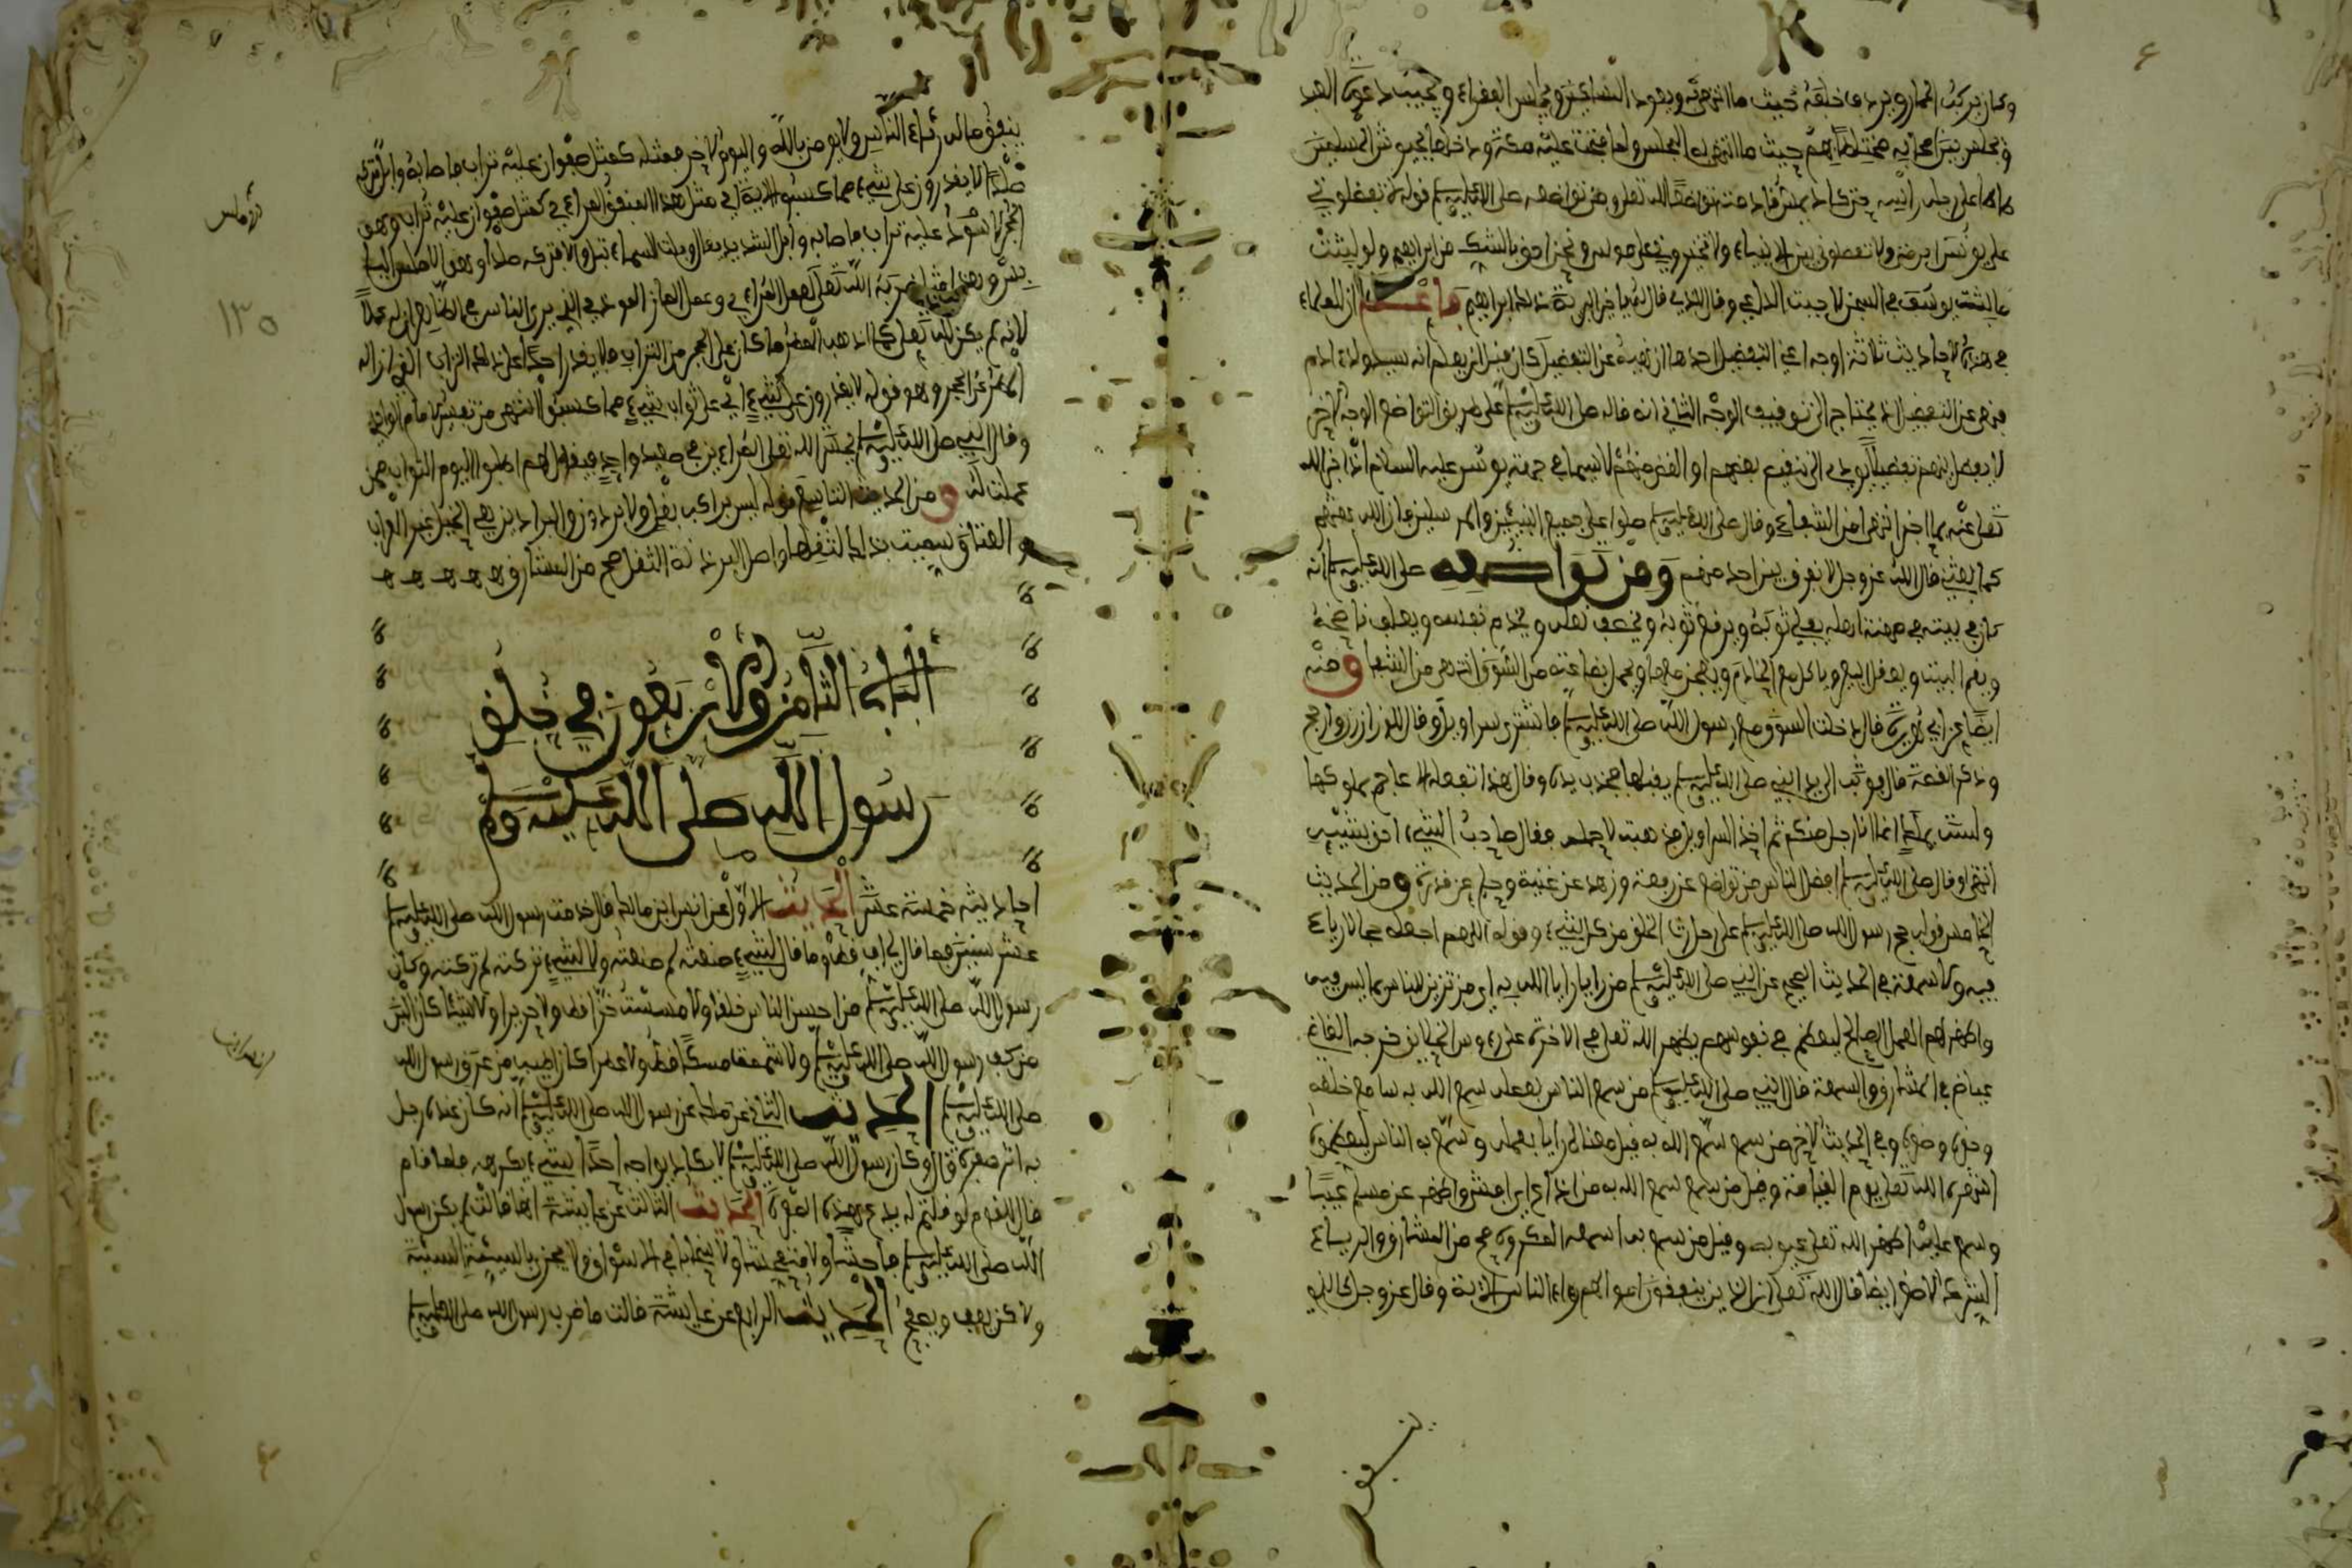 وكان يركب الحمار ويردف خلفه حيث ما انتهى به ويعود المساكين ويجالس الفقراء ويجيب دعوة العبد
ويجلس بين أصحابه مختلطا بهم حيث ما انتهى به المجلس ولما فتحت عليه مكة ودخلها بجيوش المسلمين
طاطا على رحله رأسه حتى كاد يمس قادمته تواضعا لله تعلى ومن تواضعه صلى الله عليه وسلم قوله لا تفضلوني
على يونس ابن متى ولا تفضلوني بين الانبياء ولا تخيروني على موسى ونحن احق بالشك من ابراهيم ولو لبثت
ما لبث يوسف في السجن لاجبت الداعي وقال للذي قال له يا خير البرية ذلك ابراهيم فاعلم ان للعلماء
في هذه الاحاديث ثلاثة اوجه اعني التفضيل احدها ان نهيه عن التفضيل كان قبل ان يعلم انه سيد ولد ادم
فنهى عن التفضيل اذ يحتاج الى توقيف الوجه الثاني انه قاله صلى الله عليه وسلم على طريق التواضع الوجه الاخر
لا يفضل بينهم تفضيلا يودي الى تنقيص بعضهم او الغض منهم لاسيما في جهة يونس عليه السلام اذ اخبر الله
تعلى عنه بما اخبر انتهى من الشفاء وقال صلى الله عليه وسلم صلوا على جميع النبيئين والمرسلين فان الله بعثهم
كما بعثني قال الله عز وجل لا نفرق بين احد منهم ومن تواضعه صلى الله عليه وسلم انه
كان في بيته في مهنة اهله يفلي ثوبه ويرقع ثوبه ويخصف نعله ويخدم نفسه ويعلف ناضحه
ويقم البيت ويعقل البعير وياكل مع الخادم ويعجن معها ويحمل بضاعته من السوق انتهى من الشفا ومنه
ايضا عن ابي هريرة قال دخلت السوق مع رسول الله صلى الله عليه وسلم فاشترى سراويل وقال للوزان زن وارجح
وذكر القصة قال فوثب الى يد النبي صلى الله عليه وسلم يقبلها فجذب يده وقال هذا تفعله الاعاجم بملوكها
ولست بملك انما انا رجل منكم ثم اخذ السراويل فذهبت لاحمله فقال صاحب الشيء احق بشيئه
انتهى وقال صلى الله عليه وسلم افضل الناس من تواضع عن رفعة وزهد عن غنية وحلم عن قدرة ومن الحديث
الخامس قوله حج رسول الله صلى الله عليه وسلم على رحل رث الخلق من كل شيء وقوله اللهم اجعله حجا لا رياء
فيه ولا سمعة في الحديث الصحيح عن النبي صلى الله عليه وسلم من رايا رايا الله به اي من تزين للناس بما ليس فيه
واظهر لهم العمل الصالح ليعظم في نفوسهم يظهر الله تعلى في الاخرة على رءوس الخلائق خرجه القاضي
عياض في المشارق والسمعة قال النبي صلى الله عليه وسلم من سمع الناس بعمله سمع الله به سامع خلقه
وحقره وصغره وفي الحديث الاخر من سمع سمع الله به قيل معناه من رايا بعمله وسمع به الناس ليعظموه
اشهره الله تعلى يوم القيامة وقيل من سمع سمع الله به من اذاع ابرا منشر واظهر عن مسلم عيبا
وسمع عليه اظهر الله تعلى عيوبه وقيل من سمع بعبد اسمعه المكروه صح من المشارق والرياء
الشرك الاصغر ايضا قال الله تعلى ان الذين ينفقون اموالهم رءاء الناس الاية وقال عز وجل كالذي
ينفق ماله رئاء الناس ولا يومن بالله واليوم الاخر فمثله كمثل صفوان عليه تراب فاصابه وابل فتركه
صلدا لا يقدرون على شيء مما كسبوا الاية اي مثل هذا المنفق المراءي كمثل صفوان عليه تراب وهو
الحجر الاسود عليه تراب فاصابه وابل الشديد يقال وبلت السماء تبل والا فتركه صلدا وهو الاملس اليابس
وهذا مثل ضربه الله تعلى لعمل المراءي وعمل المان الموذي الذي يرى الناس في الظاهر ان له عملا
لانه لم يكن لله تعلى كما اذهب المطر ما كان على الحجر من التراب فلا يقدر احد على ذلك التراب الذي ازاله
المطر عن الحجر وهو قوله لا يقدرون على شيء اي على ثواب شيء مما كسبوا انتهى من تفسير الامام الواحدي
وقال النبي صلى الله عليه وسلم يحشر الله تعلى المراءين في صعيد واحد فيقول لهم اطلبوا اليوم الثواب ممن
عملتم له ومن الحديث التاسع قوله ليس براكب بغل ولا برذون والبراذين هي الخيل غير العراب
والعتاق سميت بذلك لثقلها واصل البرذنة الثقل صح من المشارق ه ه ه ه ه
الباب الثامن والاربعون في خلق
رسول الله صلى الله عليه وسلم
احاديثه خمسة عشر الحديث الاول عن انس ابن مالك قال خدمت رسول الله صلى الله عليه وسلم
عشر سنين فما قال لي اف قط وما قال لشيء صنعته لم صنعته ولا لشيء تركته لم تركته وكان
رسول الله صلى الله عليه وسلم من احسن الناس خلقا ولا مسست خزا قط ولا حريرا ولا شيئا كان الين
من كف رسول الله صلى الله عليه وسلم ولا شممت مسكا قط ولا عطرا كان اطيب من عرق رسول الله
صلى الله عليه وسلم الحديث الثاني عن مالك عن رسول الله صلى الله عليه وسلم انه كان عنده رجل
به اثر صفرة قال وكان رسول الله صلى الله عليه وسلم لا يكاد يواجه احدا بشيء يكرهه فلما قام
قال للقوم لو قلتم له يدع هذه الصفرة الحديث الثالث عن عايشة انها قالت لم يكن رسول
الله صلى الله عليه وسلم فاحشا ولا متفحشا ولا صخابا في الاسواق ولا يجزي بالسيئة السيئة
ولاكن يعفو ويصفح الحديث الرابع عن عايشة قالت ما ضرب رسول الله صلى الله عليه وسلم
١٣٥